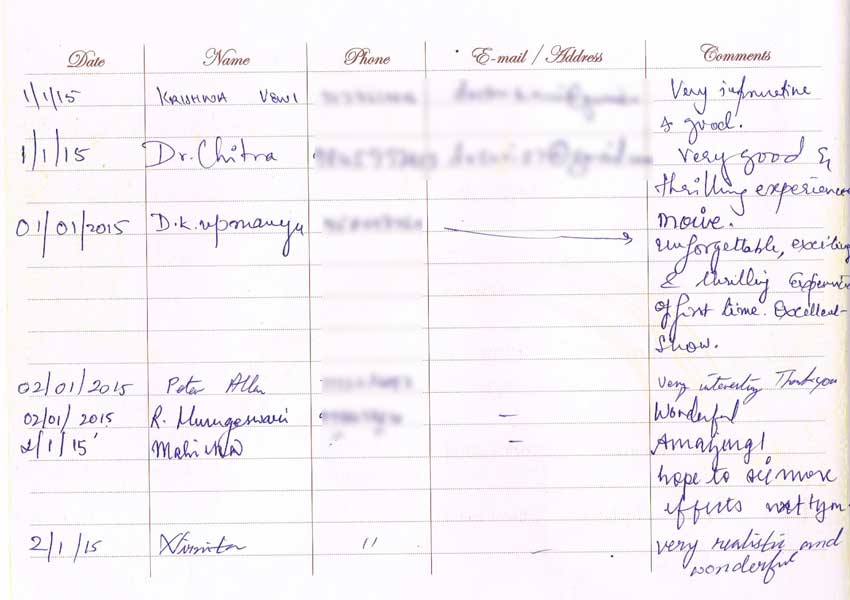 Date Name Phone E-mail / Address Comments
1/1/15 KRISHNA VENI Very informative
& good.
1/1/15 Dr. Chitra Very good &
thrilling experience
movie.
01/01/2015 D.K. Upmanyu
Unforgettable, exciting
& thrilling Experience
of first time. Excellent
Show.
02/01/2015 Peter Allen Very interesting Thank you
02/01/2015 R. Murugeswari — Wonderful
2/1/15 — Amazing!
hope to see more
effects next tym.
2/1/15 11 — very realistic and
wonderful